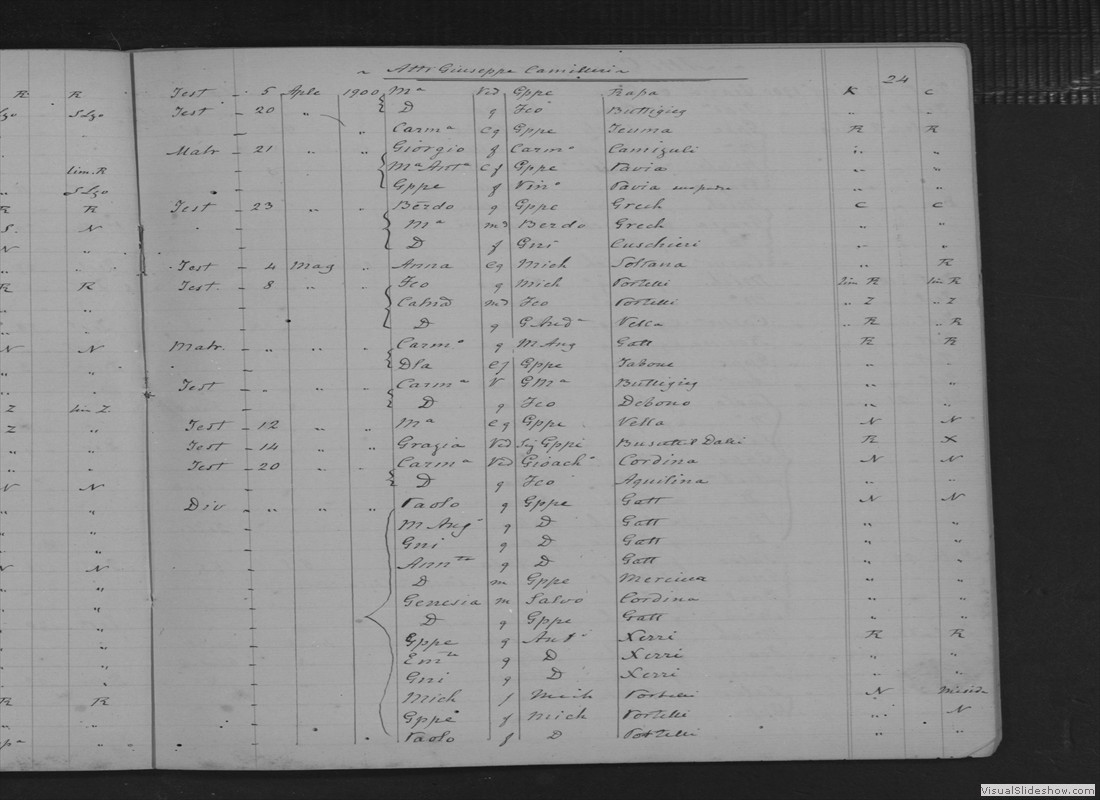 Atti Giuseppe Camilleri
24
R R Test - 5 Aple 1900 Mª Ved Gppe Rapa K C
Slgo Slgo Test - 20 " D g Fco Buttigieg " "
" Carmª Cg Gppe Teuma R R
Matr - 21 " " Giorgio f Carmº Camizuli " "
lim. R Mª Antª Cf Gppe " "
Slgo Gppe f Vinº " "
R R Test - 23 " " Berdo g Gppe Grech C C
S. N Mª md Berdo Grech " "
N " D f Gni Cuschieri " "
Test - 4 Mag " Anna Cg Mich Soltana " R
R R Test - 8 " " Fco g Mich Portelli lim R lim R
md Fco Portelli " Z " Z
D g G. Andª Vella " R " R
N N Matr. - " " " Carmº g M Ang Gatt R R
Dla Cf Gppe Tabone " "
Test - " " " Carmª V G Mª Buttigieg " "
Z lim Z D g Fco Debono " "
Z " Test - 12 " " Mª Cg Gppe Vella N N
Test - 14 " " Grazia Ved Sig Gppi R X
Test - 20 " " Carmª Ved Gioachº Cordina N N
N N D g Fco Aquilina " "
Div - " " " Paolo g Gppe Gatt N N
M Angª g D Gatt " "
Gni g D Gatt " "
N N g D Gatt " "
D m Gppe Mercieca " "
Genesia m Salvo Cordina " "
D g Gppe Gatt " "
Gppe g Antº Xerri R R
g D Xerri " "
Gni g D Xerri " "
R R Mich f Mich Portelli N
Gppe f Mich Portelli " N
Paolo f D Portelli " "
VisualSlideshow.com